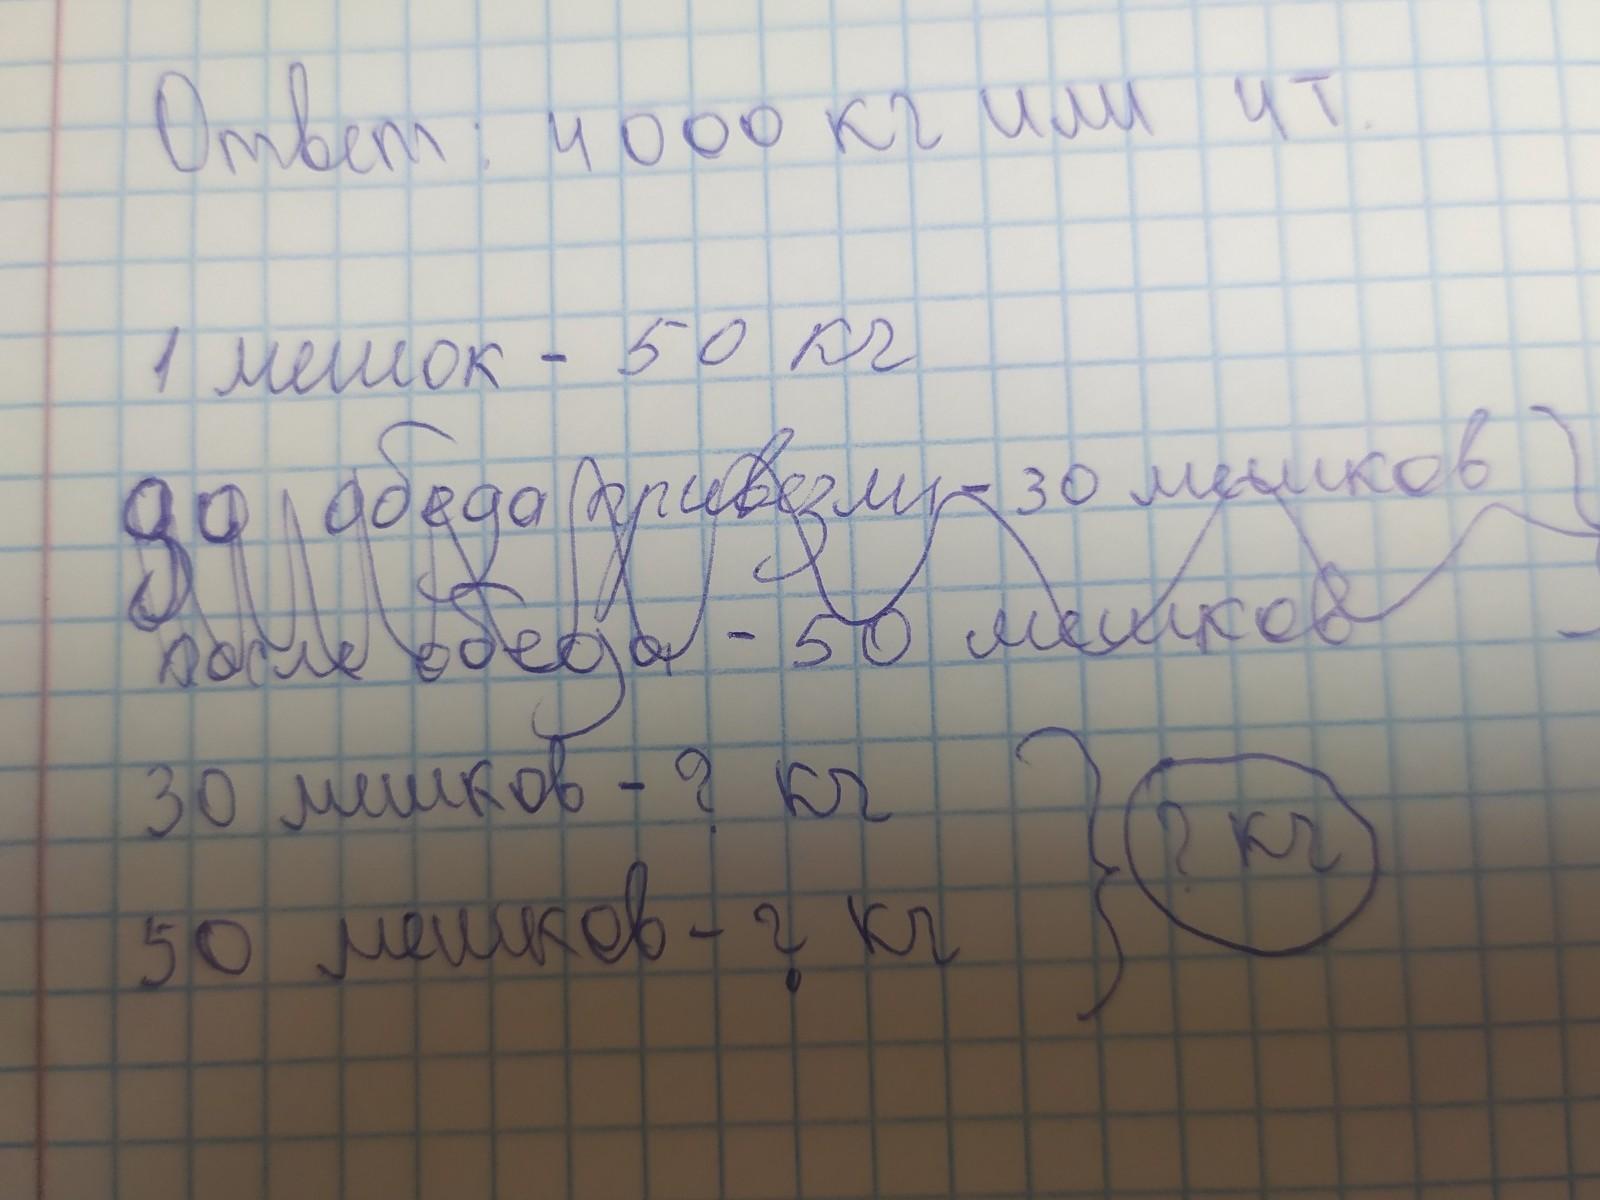 Ответ: 4000 кг или 4 т.
1 мешок - 50 кг
до обеда привезли - 30 мешков
после обеда - 50 мешков
30 мешков - ? кг
50 мешков - ? кг
? кг